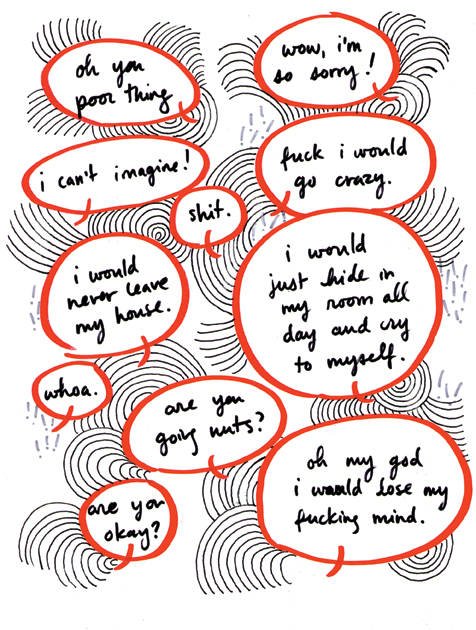 oh you
poor thing
wow, i'm
so sorry!
i can't imagine!
fuck i would
go crazy.
shit.
i would
never leave
my house.
i would
just hide in
my room all
day and cry
to myself.
whoa.
are you
going nuts?
oh my god
i would lose my
fucking mind.
are you
okay?